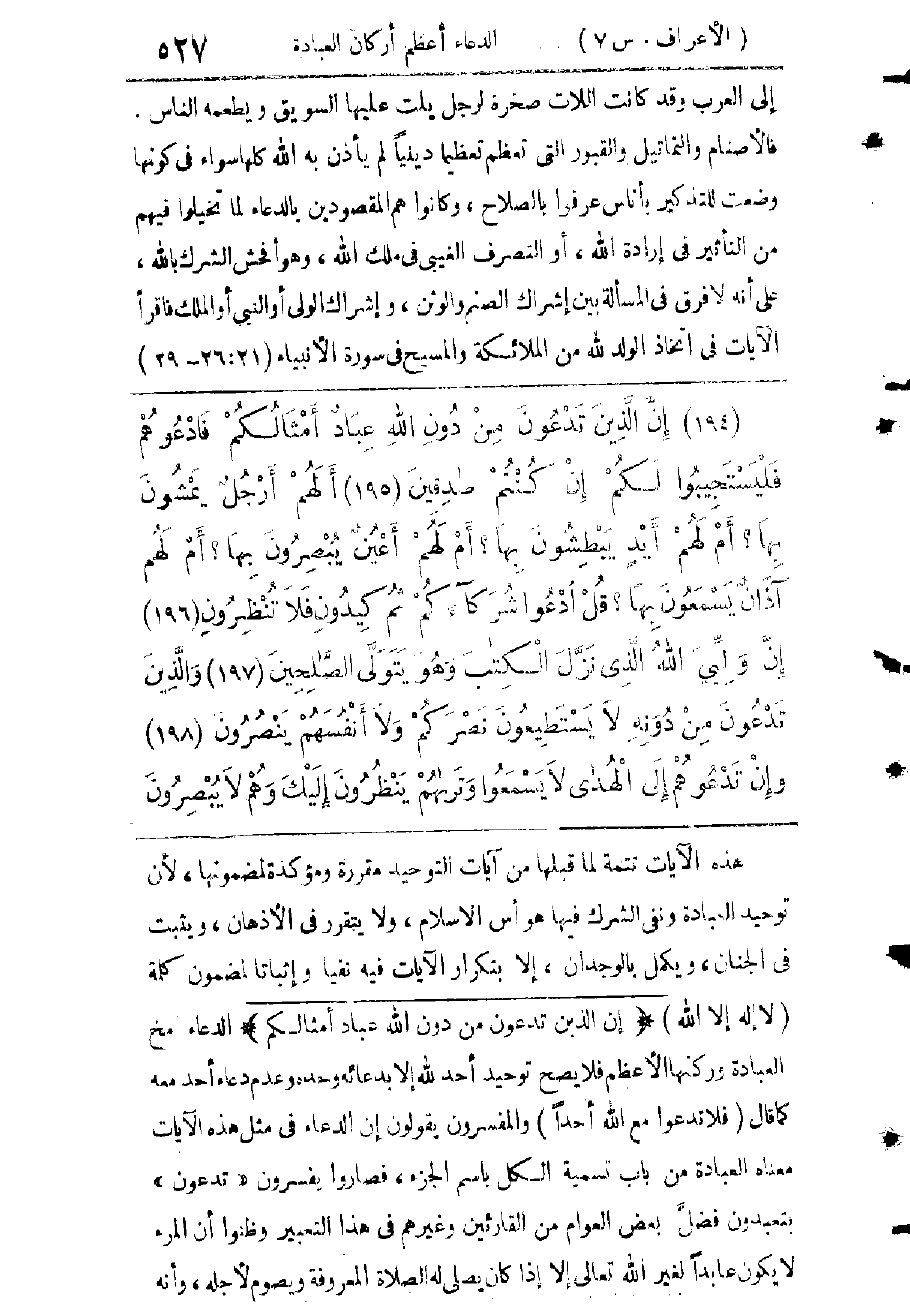 ( الأعراف . س ٧ ) الدعاء أعظم أركان العبادة ٥٢٧
إلى العرب وقد كانت اللات صخرة لرجل يلت عليها السويق ويطعمه الناس .
فالأصنام والتماثيل والقبور التى تعظم تعظيما دينياً لم يأذن به الله كلها سواء فى كونها
وضعت للتذكير بأناس عرفوا بالصلاح ، وكانوا هم المقصودين بالدعاء لما تخيلوا فيهم
من التأثير فى إرادة الله ، أو التصرف الغيبى فى ملك الله ، وهو أفحش الشرك بالله ،
على أنه لا فرق فى المسألة بين إشراك الصنم والوثن ، وإشراك الولى أو النبي أو الملك فاقرأ
الآيات فى اتخاذ الولد لله من الملائكة والمسيح فى سورة الأنبياء ( ٢١:٢٦ – ٢٩ )
(١٩٤) إِنَّ الَّذِينَ تَدْعُونَ مِنْ دُونِ اللهِ عِبَادٌ أَمْثَالُكُمْ فَادْعُوهُمْ
فَلْيَسْتَجِيبُوا لَكُمْ إِنْ كُنْتُمْ صٰدِقِينَ (١٩٥) أَلَهُمْ أَرْجُلٌ يَمْشُونَ
بِهَا ؟ أَمْ لَهُمْ أَيْدٍ يَبْطِشُونَ بِهَا ؟ أَمْ لَهُمْ أَعْيُنٌ يُبْصِرُونَ بِهَا ؟ أَمْ لَهُم
آذَانٌ يَسْمَعُونَ بِهَا ؟ قُلْ اُدْعُوا شُرَكَآءَكُمْ ثُمَّ كِيدُونِ فَلَا تُنْظِرُونِ (١٩٦)
إِنَّ وَلِيِّيَ اللهُ الَّذِى نَزَّلَ الْكِتٰبَ وَهُوَ يَتَوَلَّى الصّٰلِحِينَ (١٩٧) وَالَّذِينَ
تَدْعُونَ مِنْ دُونِهِ لَا يَسْتَطِيعُونَ نَصْرَكُمْ وَلَا أَنْفُسَهُمْ يَنْصُرُونَ (١٩٨)
وَإِنْ تَدْعُوهُمْ إِلَى الْهُدٰى لَا يَسْمَعُوا وَتَرٰىهُمْ يَنْظُرُونَ إِلَيْكَ وَهُمْ لَا يُبْصِرُونَ
هذه الآيات تتمة لما قبلها من آيات التوحيد مقررة ومؤكدة لمضمونها ، لأن
توحيد العبادة ونفى الشرك فيها هو أس الاسلام ، ولا يتقرر فى الأذهان ، ويثبت
فى الجنان ، ويكمل بالوجدان ، إلا بتكرار الآيات فيه نفيا وإثباتا لمضمون كلمة
( لا إله إلا الله ) ﴿ إن الذين تدعون من دون الله عباد أمثالكم ﴾ الدعاء مخ
العبادة وركنها الأعظم فلا يصح توحيد أحد لله إلا بدعائه وحده وعدم دعاء أحد معه
كما قال ( فلا تدعوا مع الله أحداً ) والمفسرون يقولون إن الدعاء فى مثل هذه الآيات
معناه العبادة من باب تسمية الكل باسم الجزء ، فصاروا يفسرون « تدعون »
بتعبدون فضلَّ بعض العوام من القارئين وغيرهم فى هذا التعبير وظنوا أن المرء
لا يكون عابداً لغير الله تعالى إلا إذا كان يصلى له الصلاة المعروفة ويصوم لأجله ، وأنه